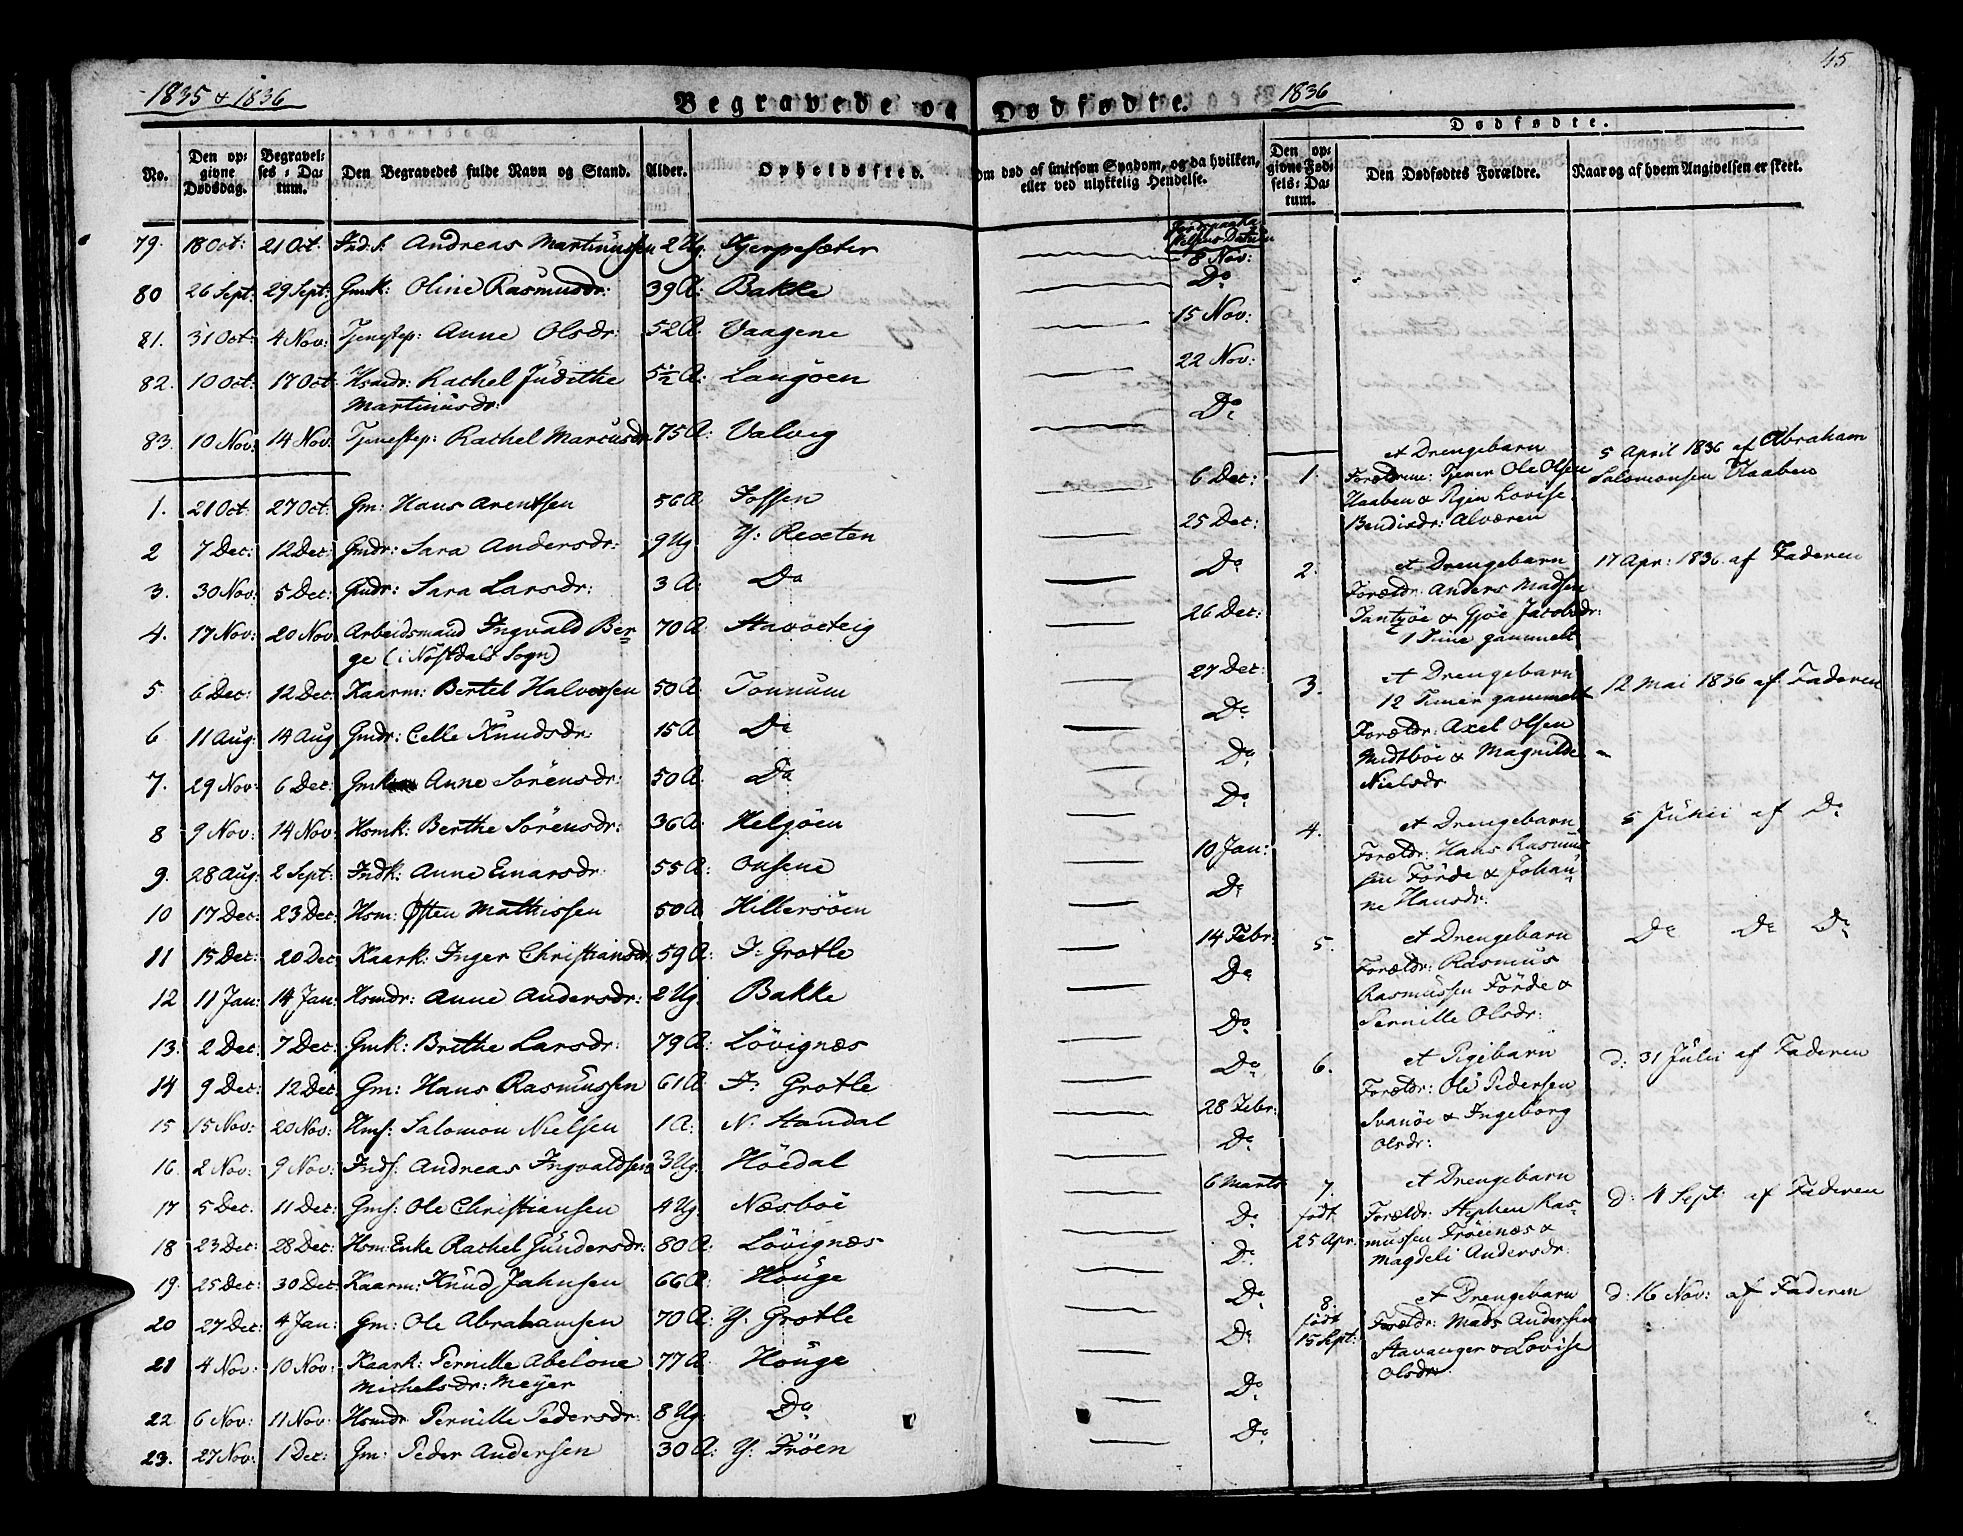 45
1835 & 1836
Begravede og Dødfødte.
1836
Dødfødte.
No.
Den opgivne Dødsdag.
Begravelses-Datum.
Den Begravedes fulde Navn og Stand.
Alder.
Opholdssted.
Om død af smitsom Sygdom, og da hvilken, eller ved ulykkelig Hendelse.
Den opgivne Fødselsdatum.
Den Dødfødtes Forældre.
Naar og af hvem Angivelsen er skeet.
79. 18 Oct: 21 Oct Ind.s: Andreas Martinussen 2 Ug. Gjerpesæter
8 Nov:
80 26 Sept: 29 Sept: Gmk: Oline Rasmusdr: 39 A: Bakke Do
81. 31 Oct: 4 Nov: Tjenestep: Anne Olsdr: 52 A. Vaagene 15 Nov:
82. 10 Oct: 17 Oct Hsmdr: Rachel Judithe 5½ A: Langöen 22 Nov:
Martinusdr:
83. 10 Nov: 14 Nov. Tjenestep: Rachel Marcusdr. 75 A: Valvig Do
1. 21 Oct: 27 Oct: Gm: Hans Arentsen 56 A. 6 Dec:
2 7 Dec: 12 Dec: Gmdr: Sara Andersdr: 9 Ug Y: Rexten 25 Dec:
3. 30 Nov: 5 Dec: Gmdr: Sara Larsdr: 3 A: Do Do
4. 17 Nov: 20 Nov Arbeidsmand Ingvald Ber- 70 A: 26 Dec:
ge (i Nöstdals Sogn)
5. 6 Dec: 12 Dec: Kaarm: Bertel Halvorsen 50 A: Tonnum 27 Dec:
6 11 Aug: 14 Aug Gmdr: Celle Knudsdr: 15 A Do Do
7. 29 Nov: 6 Dec: Gmk Anne Sörensdr: 50 A: Do Do
8 9 Nov: 14 Nov Hsmk: Berthe Sörensdr: 36 A: Helgöen Do
9. 28 Aug: 2 Sept: Indk: Anne Einarsdr: 55 A: Onsene 10 Jan:
10 17 Dec: 23 Dec: Hsm: Östen Mathissen 50 A Hillersöen Do
11 15 Dec: 20 Dec Kaark: Inger Christiansdr: 59 A: I: Grotle 14 Febr:
12 11 Jan: 14 Jan: Hsmdr: Anne Andersdr: 2 Ug. Bakke Do
13. 2 Dec: 7 Dec: Gmk: Brithe Larsdr: 79 A: Lövignæs Do
14 9 Dec: 12 Dec: Gm: Hans Rasmussen 61 A: I: Grotle Do
15 15 Nov: 20 Nov: Hms: Salomon Nielsen 1 A: N: Standal 28 Febr:
16. 2 Nov: 9 Nov: Inds: Andreas Ingvaldsen 3 Ug. Höidal Do
17 5 Dec: 11 Dec: Gms: Ole Christiansen 4 Ug: Næsböe 6 Marts
18 23 Dec: 28 Dec: Hsm: Enke Rachel Gundersdr: 80 A: Lövignæs Do
19. 25 Dec: 30 Dec: Kaarm: Knud Jahnsen 66 A: Houge Do
20 27 Dec: 4 Jan: Gm: Ole Abrahamsen 70 A: Y: Grotle Do
21 4 Nov: 10 Nov: Kaark: Pernille Abelone 77 A: Houge Do
Michelsdr: Meyer
22. 6 Nov: 11 Nov: Hsmdr Pernille Pedersdr: 8 Ug: Do Do
23. 27 Nov: 1 Dec: Gm: Peder Andersen 30 A: Y: Fröen Do
1. et Drengebarn 5 April 1836 af Abraham
Forældrene: Tjener Ole Olsen Salomonsen Haaben
Haaben & Pigen Lovise
Bendixdr: Alværen
2. et Drengebarn 17 Apr: 1836 af Faderen
Forældr: Anders Madsen
& Gjöe Jacobsdr:
1 Time gammelt
3. et Drengebarn 12 Mai 1836 af Faderen
12 Timer gammelt
Forældr: Axel Olsen
Midtböe & Magnilde
Nielsdr
4. et Drengebarn 5 Julii af Do
Forældr: Hans Rasmus
sen Förde & Johan-
ne Hansdr:
5. et Drengebarn Do Do Do
Forældr: Rasmus
Rasmussen Förde &
Pernille Olsdr:
6. et Pigebarn d: 31 Julii af Faderen
Forældr: Ole Pedersen
Svanöe & Ingeborg
Olsdr:
7. et Drengebarn d: 4 Sept: af Faderen
födt Forældr: Stephen Ras-
25 Apr: mussen Fröienæs &
Magdeli Andersdr:
8. et Drengebarn d: 16 Nov: af Faderen
födt Forældr: Mads Andersen
15 Sept: Stavanger & Lovise
Olsdr